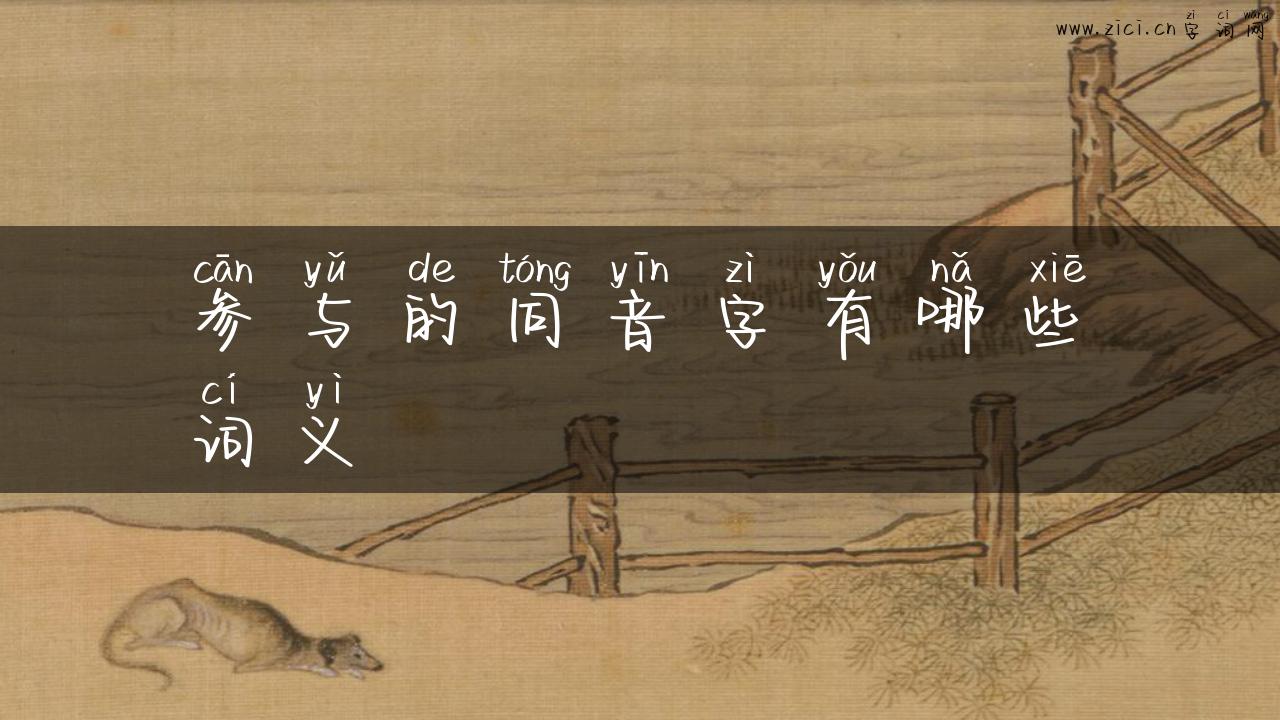 zì cí wǎng
www.zici.cn 字词网
cān yǔ de tóng yīn zì yǒu nǎ xiē
参与的同音字有哪些
cí yì
词义